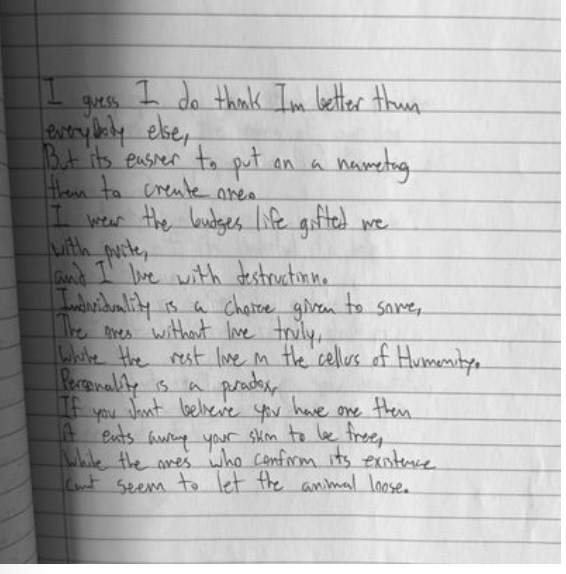 I guess I do think Im better than
everybody else,
But its easier to put on a nametag
then to create one.
I wear the badges life gifted me
with
and I live with destruction.
Individuality is a choice given to some,
The ones without live truly,
While the rest live in the cellars of Humanity.
Personality is a paradox,
If you dont believe you have one then
it eats away your skin to be free,
While the ones who conform its existence
cant seem to let the animal loose.